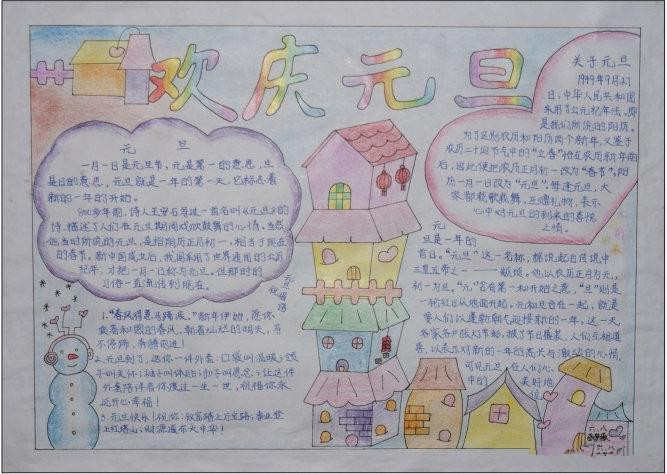 欢庆元旦
元 旦
一月一日是元旦节,元是第一的意思,旦
是日的意思,元旦就是一年的第一天,它标志着
新的一年的开始。
900多年前,诗人王安石写过一首名叫《元旦》的
诗,描述了人们在元旦期间成欢鼓舞的心情。当然
他当时所说的元旦,是指阴历正月初一,相当于现在
的春节。新中国成立后,我国采用了世界通用的公历
纪年,才把一月一日称为元旦。但那时的
习惯一直流传到现在。
关于元旦
1949年9月27
日,中华人民共和国
采用了公元纪年法,即
是我们所说的阳历。
为了区别农历和阳历两个新年,又鉴于
农历二十四节气中的“立春”恰在农历新年前
后,因此便把农历正月初一改为“春节”,阳
历一月一日改为“元旦”。每逢元旦,大
家都载歌载舞,互赠礼物,表示
心中对元旦的到来的喜悦
之情。
元
旦是一年的
首日。“元旦”这一名称,据说起自传说中
三皇五帝之一
颛顼。他以农历正月为元,
初一为旦。“元”含有第一和开始之意,“旦”则是
一轮红日从地面升起。元和旦合在一起,就是
要人们以蓬勃朝气迎接新的一年。这一天
各家各户张灯节彩,
人们互相道
喜,以表示对新的一年的
欢欣的心情,
可见元旦
在人们心
中的
美好地
位。
元旦
祝福语
1.“春风得意马蹄疾。”新年伊始,愿你
乘着和煦的春风,朝着灿烂的明天,马
不停蹄,奔腾前进!
2.元旦到了,送你一件外套:口袋叫温暖;领
子叫关怀;袖子叫体贴;扣子叫思念;让这件
外套陪伴着你渡过一生一世,祝福你永
远开心幸福!
3.元旦快乐!祝你:致富踏上万宝路,事业登
上红塔山,财源遍布大中华!
六、八